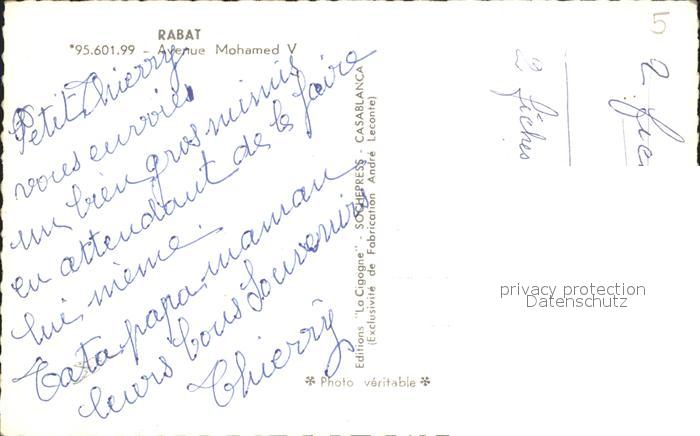 RABAT
*95.601.99 - Avenue Mohamed V
Petit Thierry
vous envoies
un bien gros mimis
en attendant de le faire
lui même.
Tata, papa, maman
leurs bons souvenirs
Thierry
Editions "La Cigogne" - SOCHEPRESS - CASABLANCA
(Exclusivité de Fabrication André Leconte)
* Photo véritable *
5
2 fiches
2 fic
privacy protection
Datenschutz